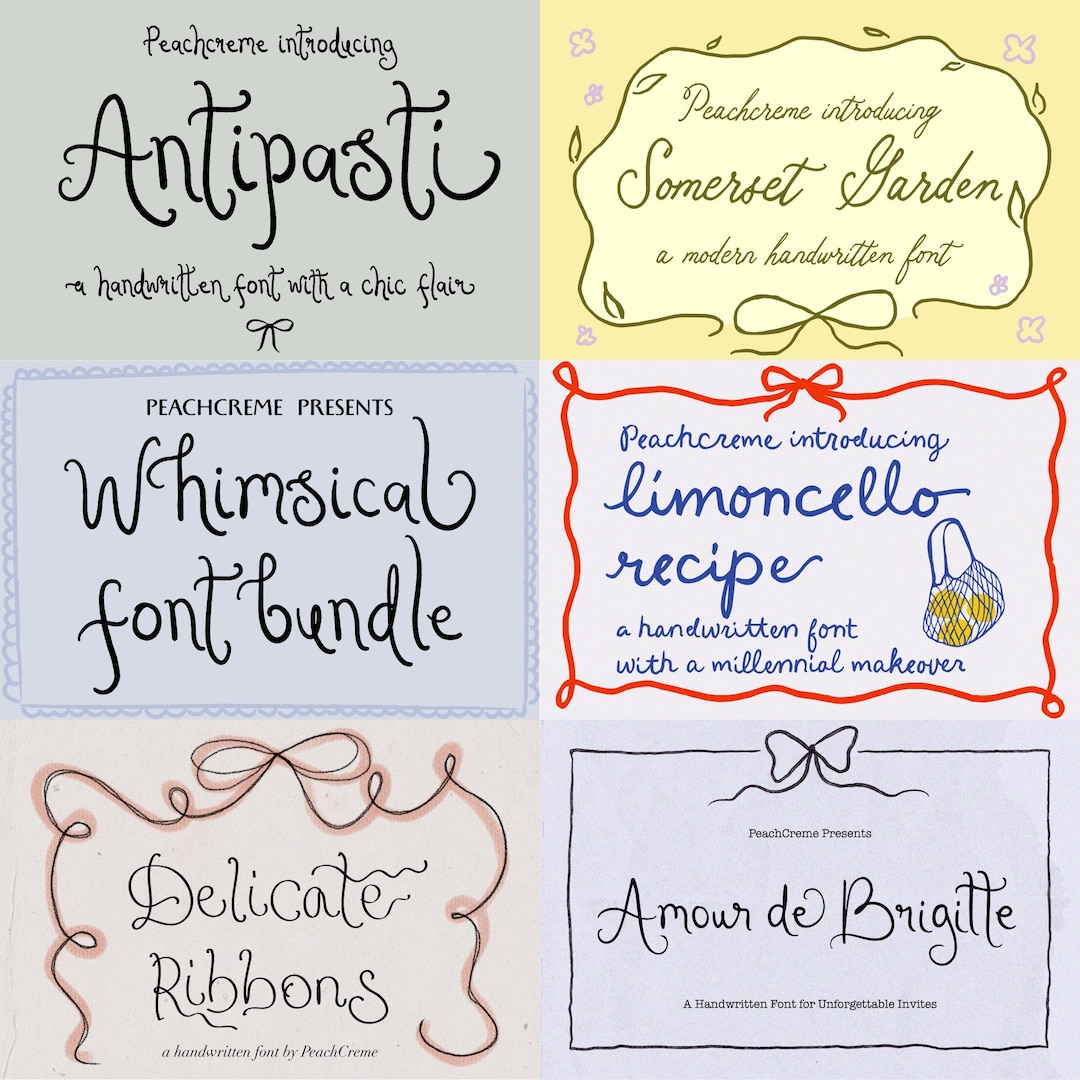 Peachcreme introducing
Antipasti
a handwritten font with a chic flair
Peachcreme introducing
Somerset Garden
a modern handwritten font
PEACHCREME PRESENTS
Whimsical
font bundle
Peachcreme introducing
limoncello
recipe
a handwritten font
with a millennial makeover
Delicate
Ribbons
a handwritten font by PeachCreme
PeachCreme Presents
Amour de Brigitte
A Handwritten Font for Unforgettable Invites